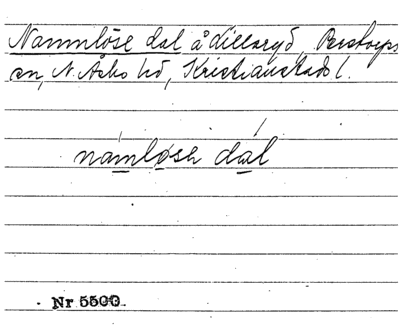 Nammlöse dal å Lilleryd, Perstorps
sn, N. Åsbo hd, Kristianstads l.
námløsə dál
Nr 5500